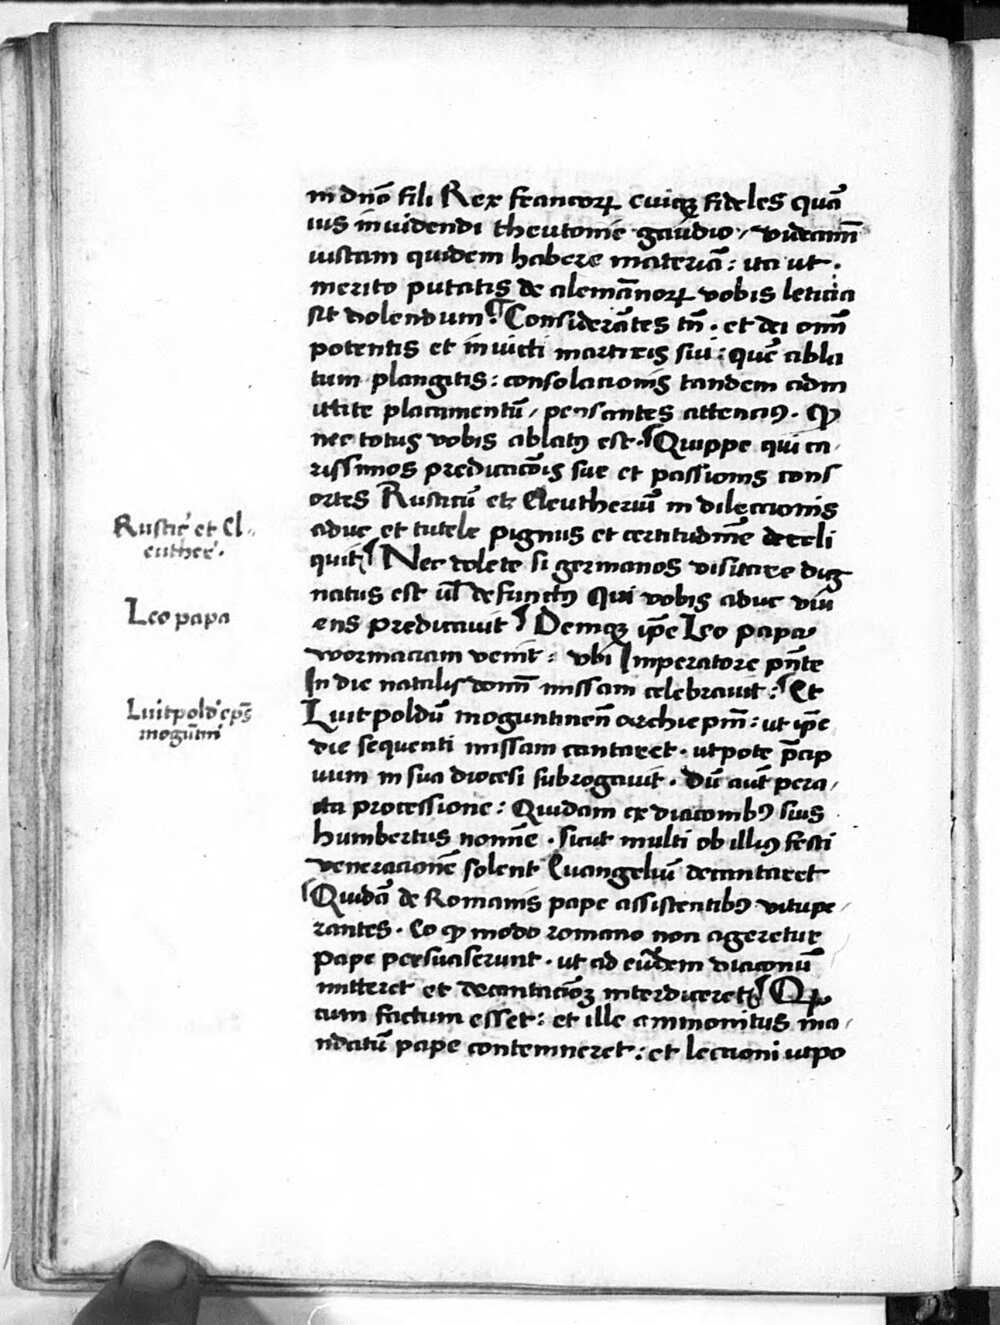 in dn̄o fili Rex francorꝝ cuiꝰqꝫ fideles quā
ius inuidendi theutonie gaudio / videam̄
iustam quidem habere materiā : ita ut .
merito putatis de alemānorꝝ vobis leticia
sit dolendum . ¶ Considerātes tn̄ . et dei om̄
potentis et inuicti martiris sui : quē abla
tum plangitis : consolacionis tandem adm
ittite placamentū / pensantes attenciꝰ . ꝙ
nec totus vobis ablatꝰ est . ¶ Quippe qui ca/
rissimos predicacōis sue et passionis cons
ortes Rusticū et Eleutheriū in dileccionis
aduc et tutele pignus et certitudinē dereli
quit ¶ Nec dolete si germanos visitare dig
natus est ul̄ defunctꝰ Qui vobis aduc viu
ens predicauit ¶ Deniqꝫ ip̄e Leo papa
wormaciam venit : vbi Imperatore pn̄te
In die natalis domī missam celebrauit : ¶ Et
Luitpoldū moguntinen̄ archiepm̄ : ut ip̄e
die sequenti missam cantaret . utpote p̄cip
uum in sua diocesi subrogauit . dū aut̄ pera/
cta processione : Quidam ex diaconibꝰ suis
humbertus nomīe . sicut multi ob illiꝰ festi
veneracionē solent Euangeliū decantaret
¶ Quidā de Romanis pape assistentibꝰ vitupe/
rantes . Eo ꝙ modo romano non ageretur
pape persuaserunt . ut ad eūdem diaconū
mitteret et decantacōeꝫ interdiceret ¶ Qd̄
cum factum esset : et ille ammonitus ma/
ndatū pape contemneret : et leccioni utpo
Rustic' et El-
euther' .
Leo papa
Luitpold' ep̄s
mogūtin'